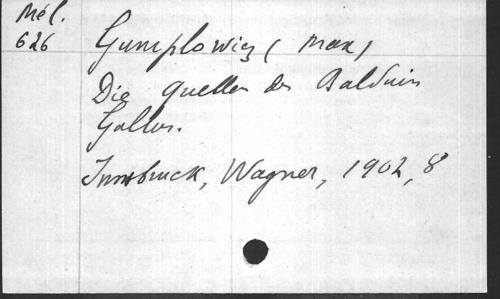 Mél.
626
Gumplowicz (Max)
Die Quellen des Balduin
Gallus.
Innsbruck, Wagner, 1902, 8°